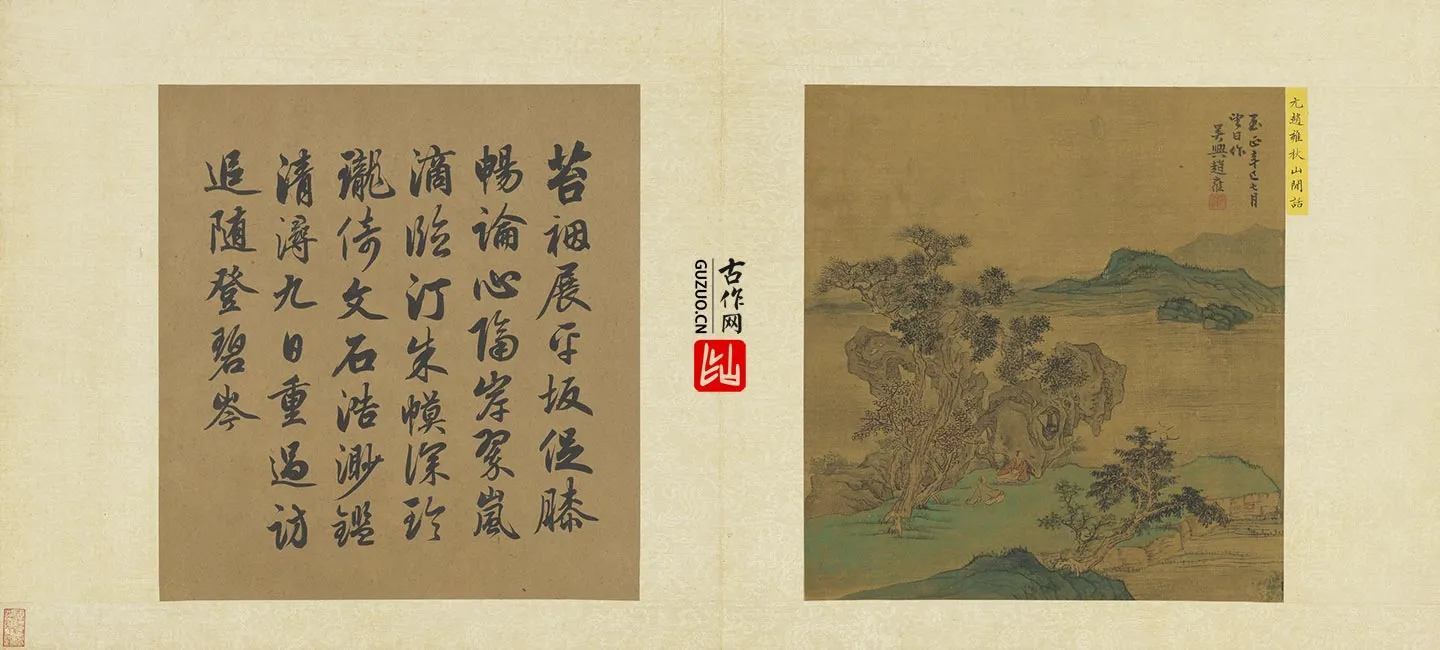 元趙雍秋山閒話
至正辛巳七月
望日作
吳興趙雍
古作网
GUZUO.CN
苔裀展平坂促膝
暢論心隔岸翠嵐
滴臨汀朱幙深玲
瓏倚文石浩渺鑑
清潯九日重過訪
追隨登碧岑